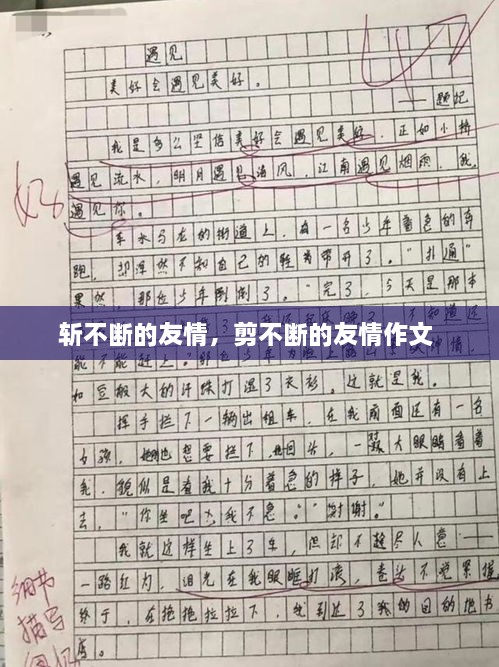 遇见
美好会遇见美好。
——题记
我是多么坚信美好会遇见美好，正如小桥
遇见流水，明月遇见清风，江南遇见烟雨，我
遇见你。
车水马龙的街道上，有一名少年着急的奔
跑，却浑然不知自己的鞋带开了。"扑通"
果然，那位少年倒了。"完了，今天是那本
斩不断的友情，剪不断的友情作文
能不能赶上。"
如豆般大的汗珠打湿了衣衫。这就是我。
挥手拦下一辆出租车，在我前面还有一名
女孩，她刚也想要拦下，她回头，一双大眼睛看着
我，貌似是看我十分着急的样子，她并没有上
去，"你坐吧，我不急。""谢谢。"
我就这样坐上了车，但却不趁尽人意——
一路红灯，阳光在我眼眶打滚，
终于，在拖拖拉拉下，我到达了我的目的地书
店。
好
细节
描写